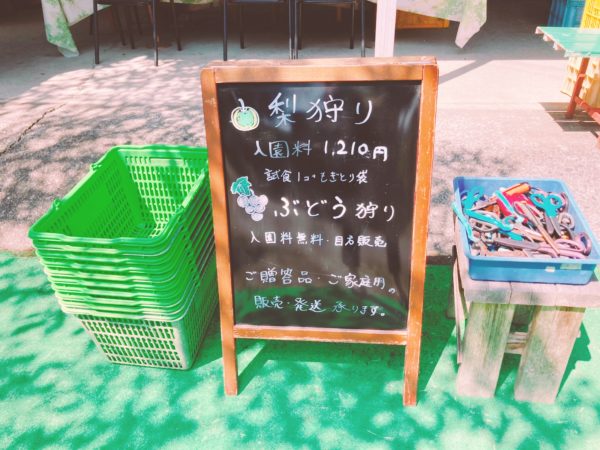 梨狩り
入園料 1,210円
試食1コ+もぎとり袋
ぶどう狩り
入園料無料・目方販売
ご贈答品・ご家庭用の
販売・発送 承ります。